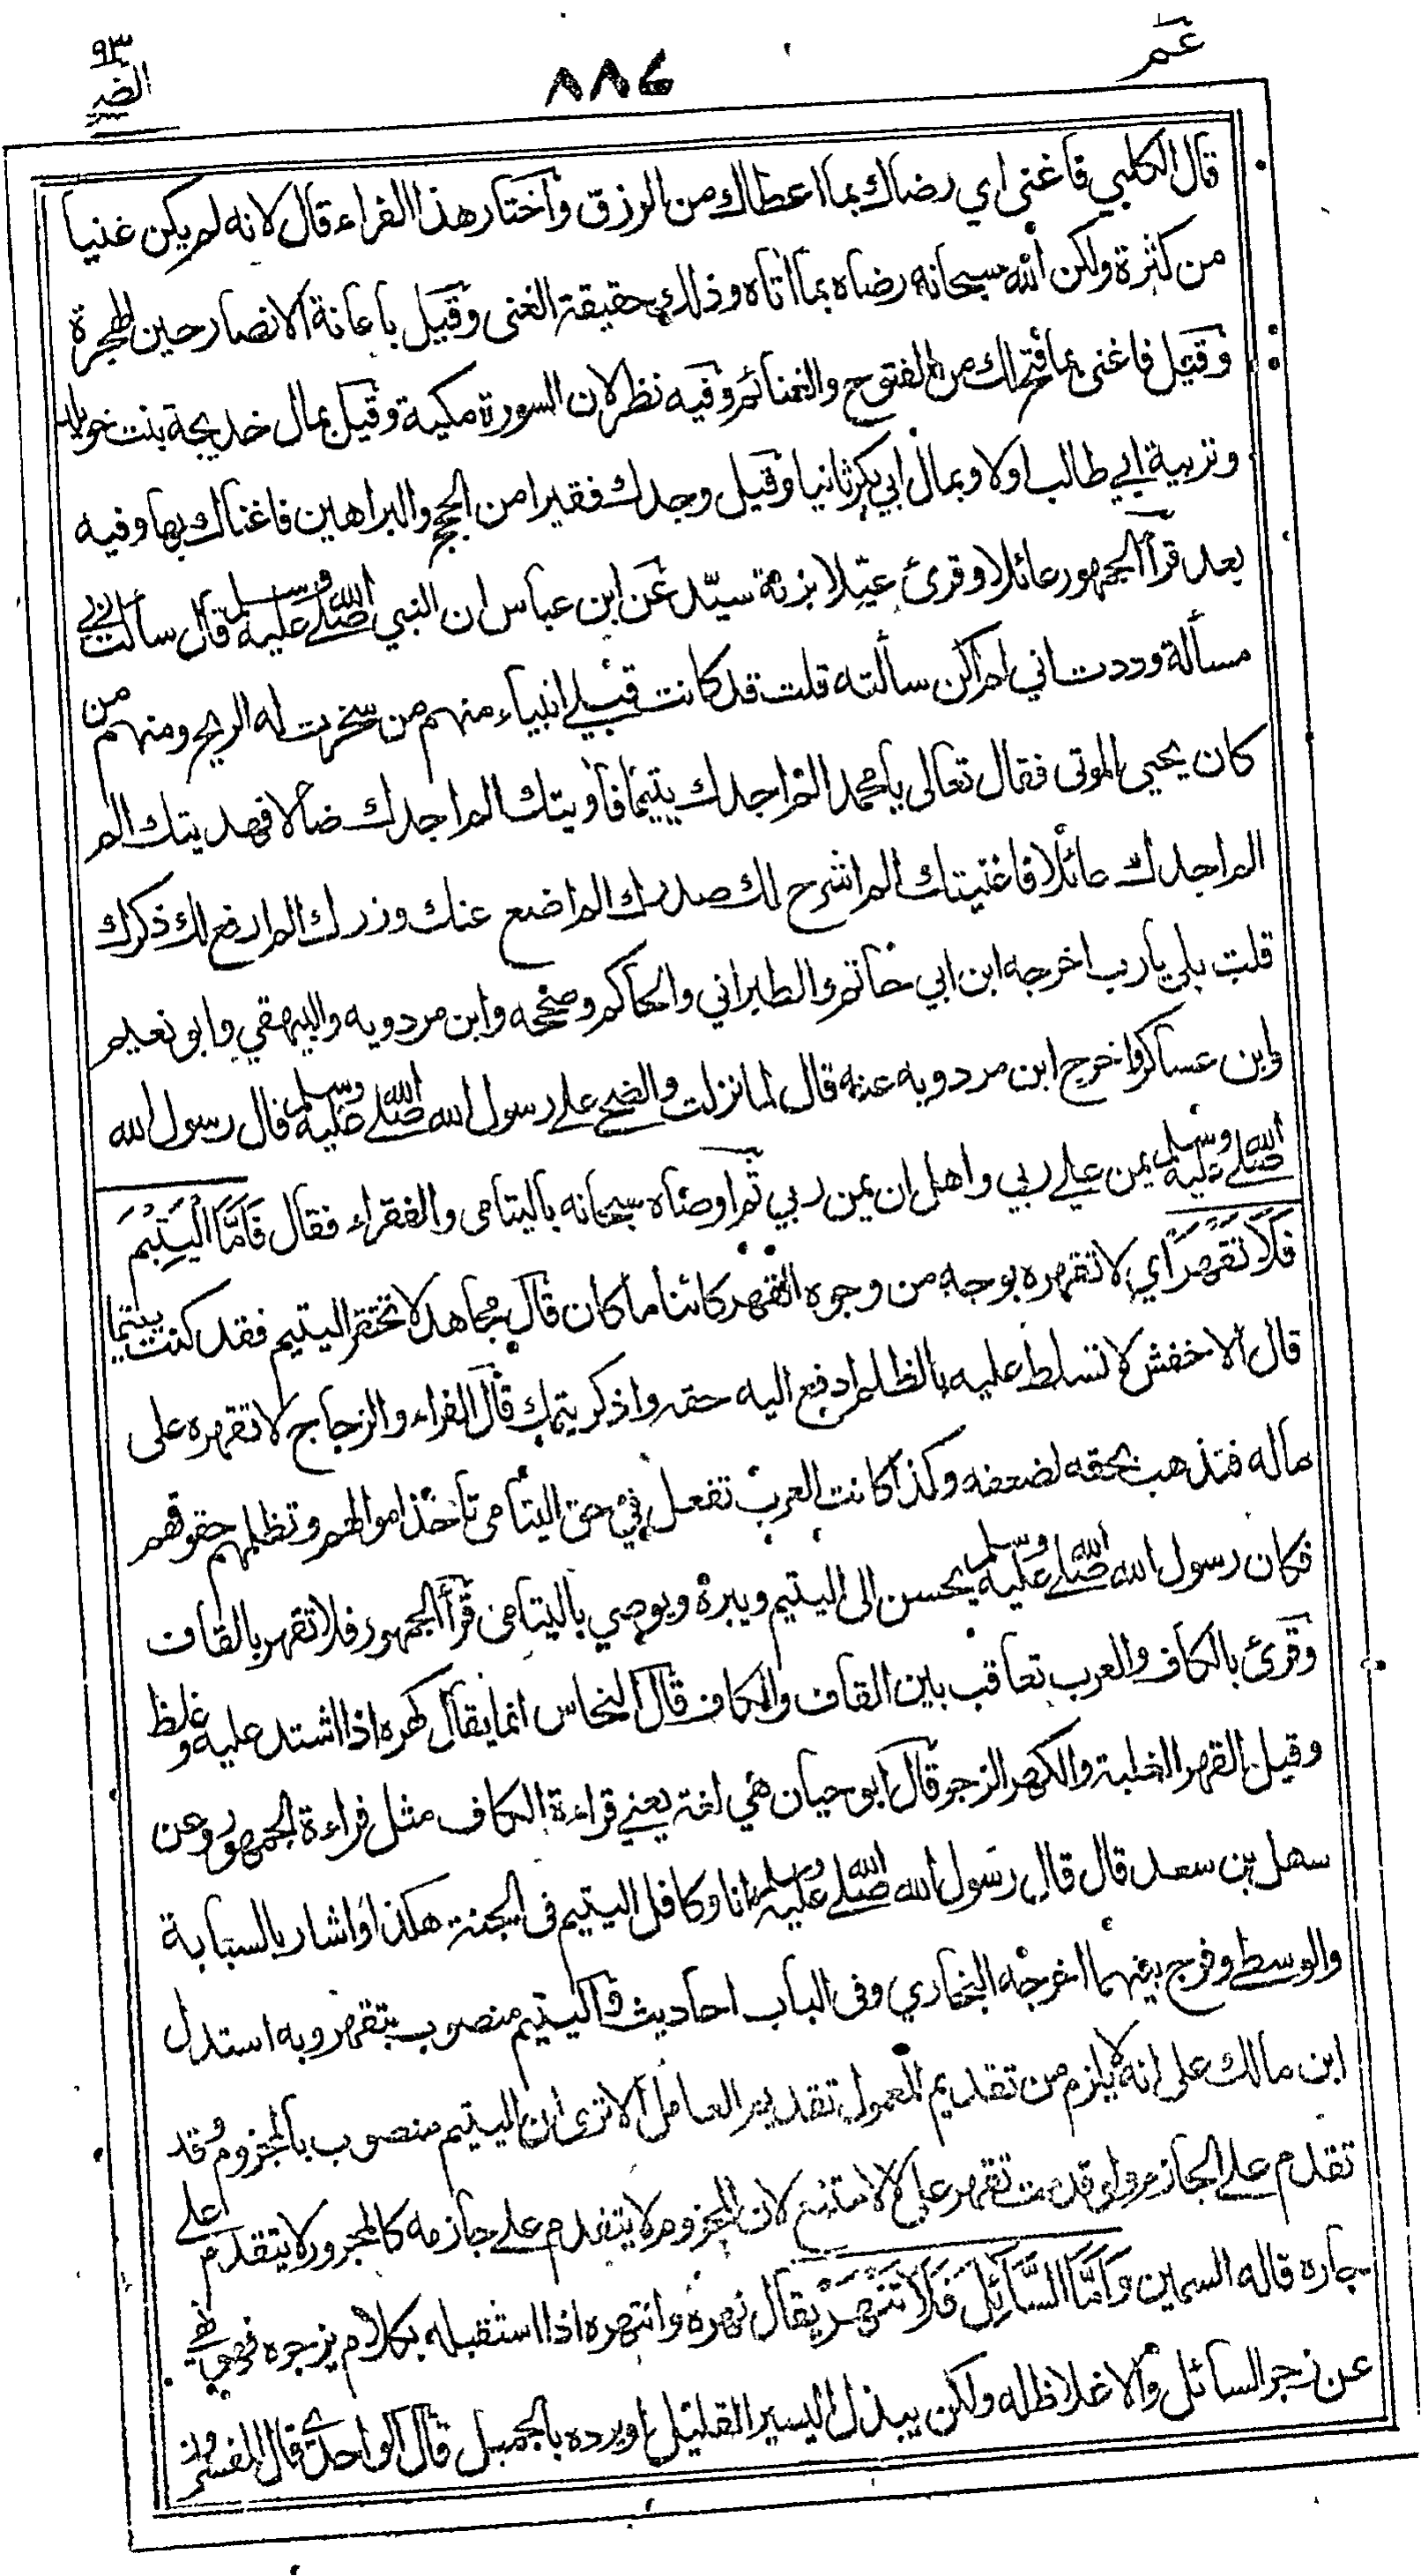 عم
٨٨٦
٩٣
الضحى
قال الكلبي فاغنى اي رضاك بما اعطاك من الرزق واختار هذا الفراء قال لانه لم يكن غنيا
من كثرة ولكن الله سبحانه رضاه بما اتاه وذلك حقيقة الغنى وقيل باعانة الانصار حين الهجرة
وقيل فاغنى بما فتح لك من الفتوح والغنائم وفيه نظر لان السورة مكية وقيل بمال خديجة بنت خويلد
وتربية ابي طالب اولا وبمال ابي بكر ثانيا وقيل وجدك فقيرا من الحجج والبراهين فاغناك بها وفيه
بعد قرأ الجمهور عائلا وقرئ عيّلا بزنة سيّد عن ابن عباس ان النبي صلى الله عليه وسلم قال سألت ربي
مسألة وددت اني لم اكن سألته قلت قد كانت قبلي انبياء منهم من سخرت له الريح ومنهم من
كان يحيي الموتى فقال تعالى يا محمد الم اجدك يتيما فآويتك الم اجدك ضالا فهديتك الم
الم اجدك عائلا فاغنيتك الم اشرح لك صدرك الم اضع عنك وزرك الم ارفع لك ذكرك
قلت بلى يا رب اخرجه ابن ابي حاتم والطبراني والحاكم وصححه وابن مردويه والبيهقي وابو نعيم
وابن عساكر واخرج ابن مردويه عنه قال لما نزلت والضحى على رسول الله صلى الله عليه وسلم قال رسول الله
صلى الله عليه وسلم يمن علي ربي واهل ان يمن ربي ثم اوصاه سبحانه باليتامى والفقراء فقال فَاَمَّا الْيَتِيْمَ
فَلَا تَقْهَرْ اي لا تقهره بوجه من وجوه القهر كائنا ما كان قال مجاهد لا تحتقر اليتيم فقد كنت يتيما
قال الاخفش لا تسلط عليه بالظلم ادفع اليه حقه واذكر يتمك قال الفراء والزجاج لا تقهره على
ماله فتذهب بحقه لضعفه وكذا كانت العرب تفعل في حق اليتامى تاخذ اموالهم وتظلمهم حقوقهم
فكان رسول الله صلى الله عليه وسلم يحسن الى اليتيم ويبره ويوصي باليتامى قرأ الجمهور فلا تقهر بالقاف
وقرئ بالكاف والعرب تعاقب بين القاف والكاف قال النحاس انما يقال كهره اذا اشتد عليه وغلظ
وقيل القهر الغلبة والكهر الزجر قال ابو حيان هي لغة يعني قراءة الكاف مثل قراءة الجمهور وعن
سهل بن سعد قال قال رسول الله صلى الله عليه وسلم انا وكافل اليتيم في الجنة هكذا واشار بالسبابة
والوسطى وفرج بينهما اخرجه البخاري وفي الباب احاديث واليتيم منصوب بتقهر وبه استدل
ابن مالك على انه لا يلزم من تقديم المعمول تقدير العامل الا ترى ان اليتيم منصوب بالمجزوم وقد
تقدم على الجازم ولو قدمت تقهر على لا لامتنع لان المجزوم لا يتقدم على جازمه كالمجرور لا يتقدم على
جاره قاله السمين وَاَمَّا السَّائِلَ فَلَا تَنْهَرْ يقال نهره وانتهره اذا استقبله بكلام يزجره فهو نهي
عن زجر السائل والاغلاظ له ولكن يبذل اليسير القليل او يرده بالجميل قال الواحدي قال المفسرون